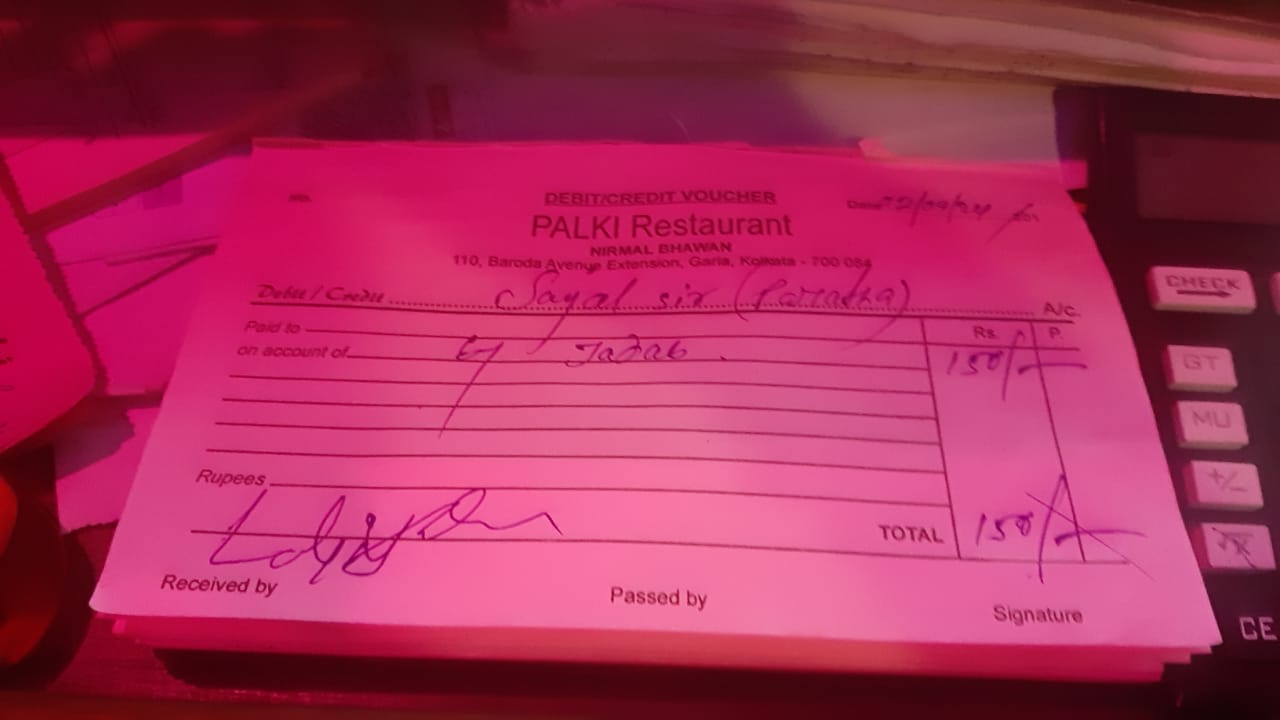 No.
DEBIT/CREDIT VOUCHER
Date /201
PALKI Restaurant
NIRMAL BHAWAN
110, Baroda Avenue Extension, Garia, Kolkata - 700 084
Debit / Credit Sayal sir A/c.
Paid to
Rs. P.
on account of by 150/-
Rupees
TOTAL 150/-
Received by Passed by Signature
CHECK
GT
MU
+/-
CE